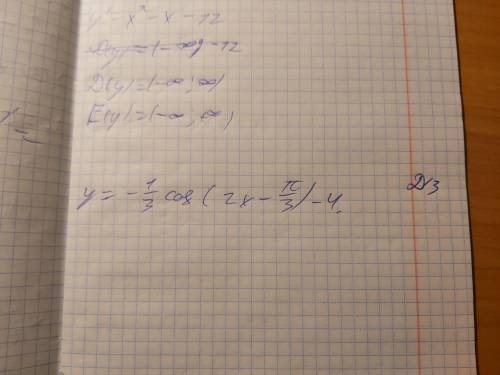 y = x² - x - 12
D(y) = (-∞; -12
D(y) = (-∞; ∞)
E(y) = (-∞; ∞)
y = -1/3 cos(2x - π/3) - 4.
Д/з